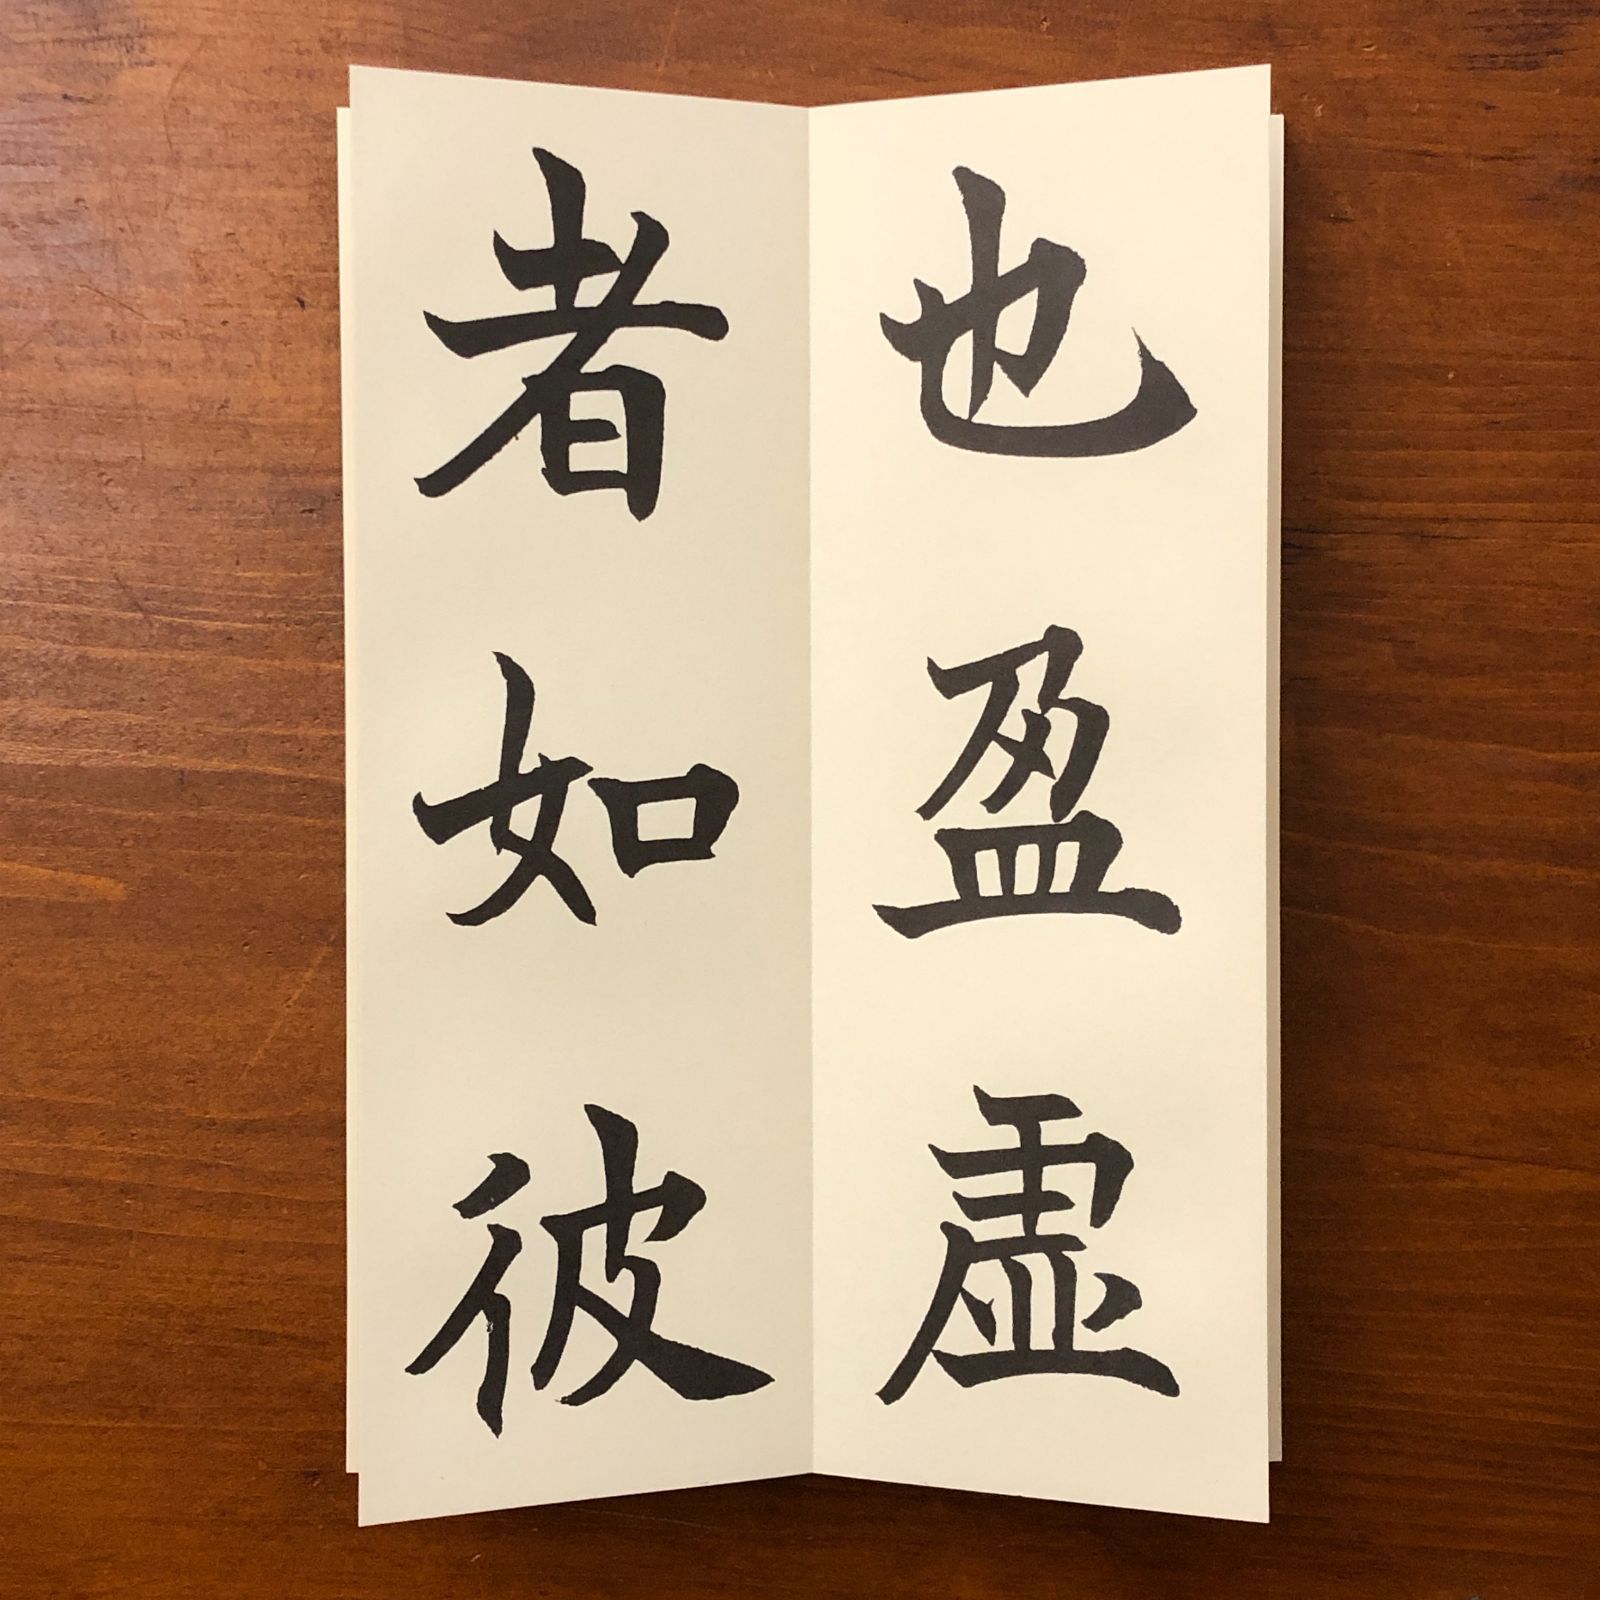 也盈虚
者如彼